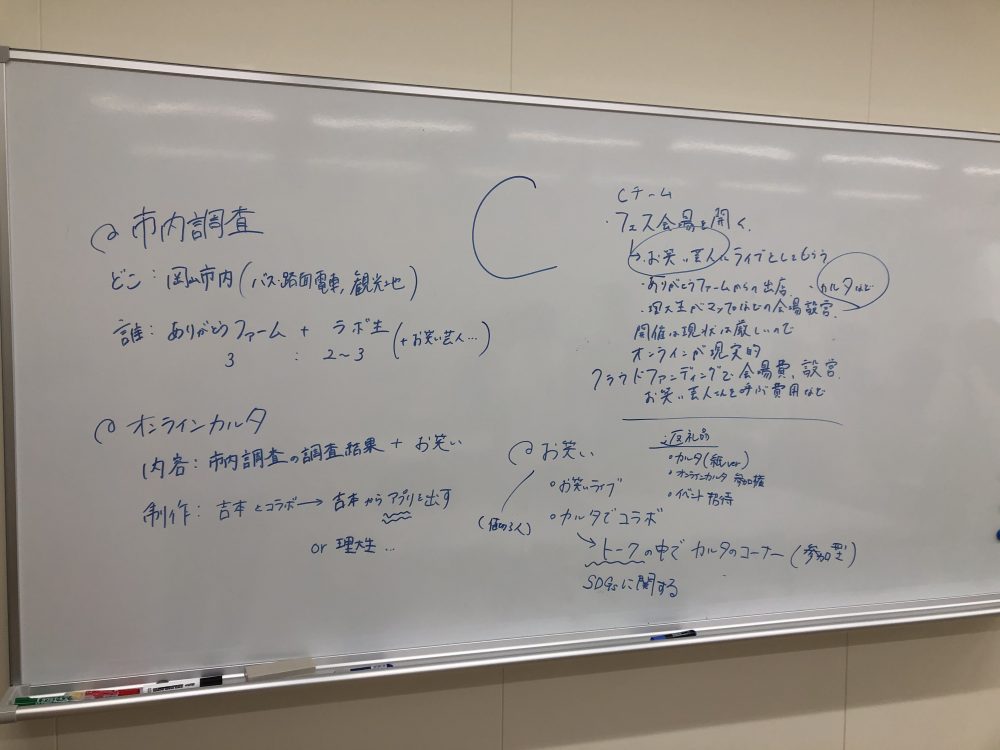 市内調査
どこ：岡山市内(バス・路面電車, 観光地)
誰：ありがとうファーム + ラボ生 (+お笑い芸人…)
3 : 2〜3
オンラインカルタ
内容：市内調査の調査結果 + お笑い
制作：吉本とコラボ→吉本からアプリを出す
or 理大生…
C
Cチーム
・フェス会場を開く
↳お笑い芸人にライブをしてもらう
・ありがとうファームからの出店 ・カルタなど
・理大生がマップなどの会場設営
開催は現状は厳しいので
オンラインが現実的
クラウドファンディングで会場費、設営、
お笑い芸人さんを呼ぶ費用など
返礼品
・カルタ(紙ver)
・オンラインカルタ 参加権
・イベント招待
お笑い
○お笑いライブ
○カルタでコラボ
→トークの中でカルタのコーナー(参加型)
SDGsに関する